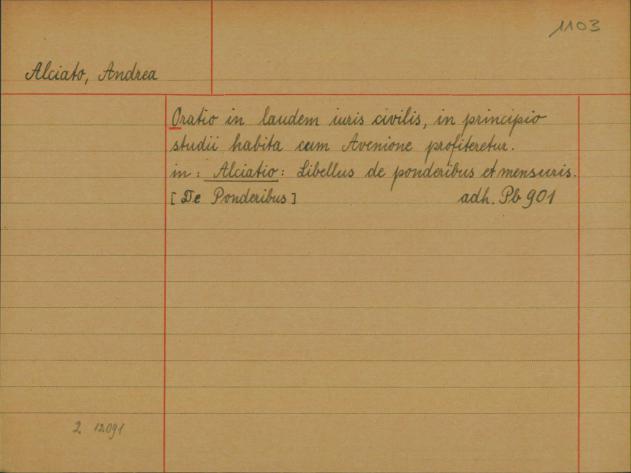 1103
Alciato, Andrea
Oratio in laudem iuris civilis, in principio
studii habita cum Avenione profiteretur.
in: Alciatio: Libellus de ponderibus et mensuris.
[De Ponderibus] adh. Pb 901
2 12091